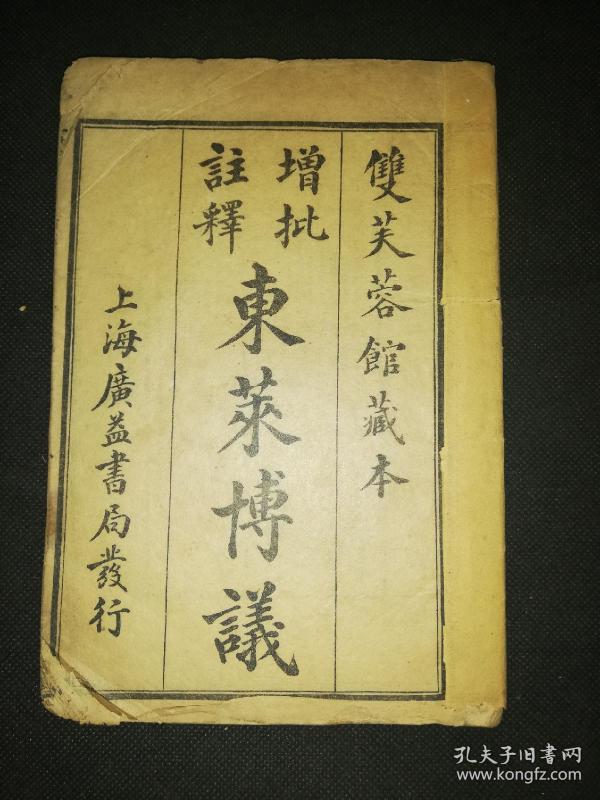 雙芙蓉館藏本
增批
註釋
東萊博議
上海廣益書局發行
孔夫子旧书网
www.kongfz.com